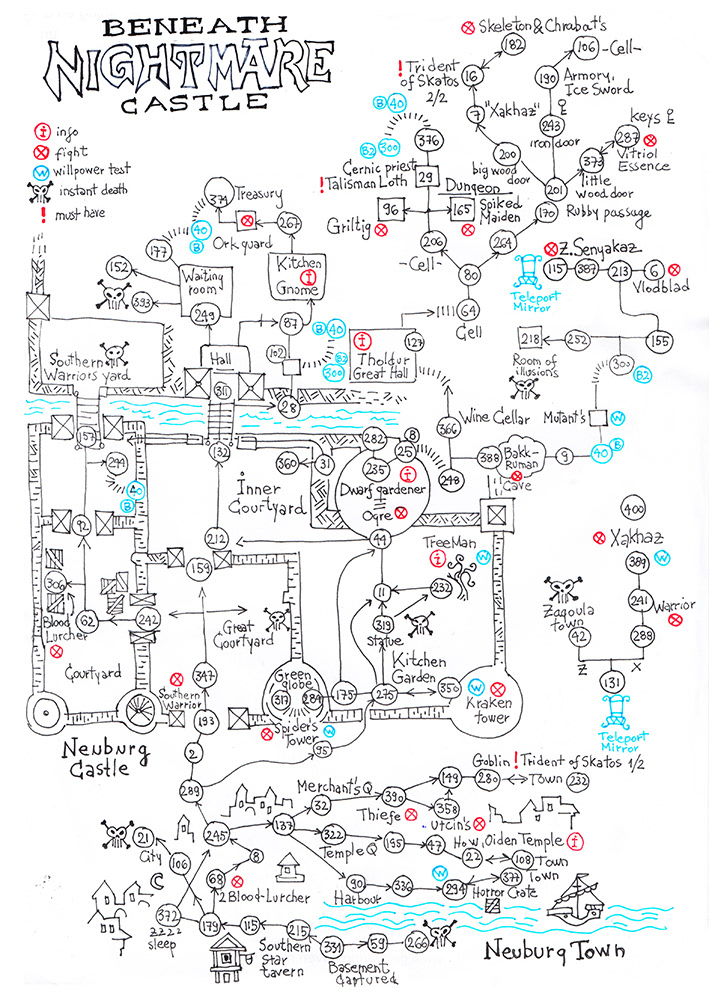 BENEATH
NIGHTMARE
CASTLE
i info
fight
W willpower test
instant death
! must have
Skeleton & Chrabat's
182
106 -Cell-
! Trident
of Skatos
2/2
16
190
Armory,
Ice Sword
B 40
7 "Xakhaz"
243
iron door
keys
287
B2 300
376
200
big wood
door
373
Vitriol
Essence
Gernic priest
! Talisman Loth
29
Dungeon
201
little
wood door
96
165
Spiked
Maiden
170
Rubby passage
Griltig
206
264
-Cell-
80
374
Treasury
267
40
B
Ork guard
177
152
Waiting
room
Kitchen
Gnome
i
393
249
Z. Senyakaz
115
387
213
6
Vlodblad
Teleport
Mirror
87
B 40
i
127
64
Cell
218
252
155
Hall
102
B2
300
Tholdur
Great Hall
Room of
illusions
300
B2
Southern
Warriors yard
311
28
Wine Cellar
366
Mutant's
W
157
132
282
25
B
40
B
244
360
31
235
i
248
388
Bakk-
Ruman
9
40
B
Inner
Courtyard
Dwarf gardener
Cave
92
Ogre
400
212
44
TreeMan
i
W
Xakhaz
W
389
159
11
232
306
Zagoula
town
241
Warrior
Blood
Lurcher
62
242
Great
Courtyard
319
statue
42
288
Courtyard
Kitchen
Garden
Z
X
131
347
Southern
Warrior
Green
globe
317
284
175
275
350
W
Kraken
tower
Teleport
Mirror
193
Spider's
Tower
W
Neuburg
Castle
2
95
Goblin ! Trident of Skatos 1/2
289
Merchant's Q
149
280
Town
232
32
390
358
Thiefe
Utcin's
21
City
245
137
322
195
47
How, Oiden Temple
i
Temple Q
22
108
Town
106
8
W
377
Town
68
2 Blood-Lurcher
90
336
294
Harbour
Horror Crate
372
zzzz
sleep
179
115
215
Southern
Star
tavern
331
59
266
Basement
Captured
Neuburg Town